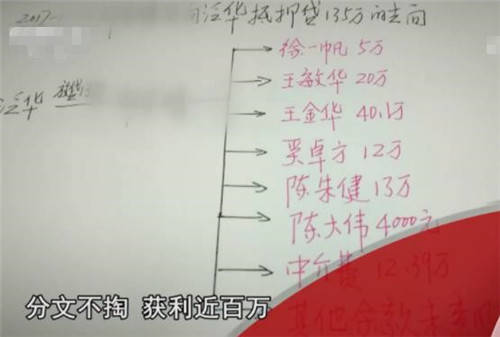 2017-
泛华抵押贷135万的去向
徐一帆 5万
王敏华 20万
泛华
王金华 40.1万
吴卓方 12万
陈朱健 13万
陈大伟 4000元
中介费 12.39万
分文不掏 获利近百万
其他余款未